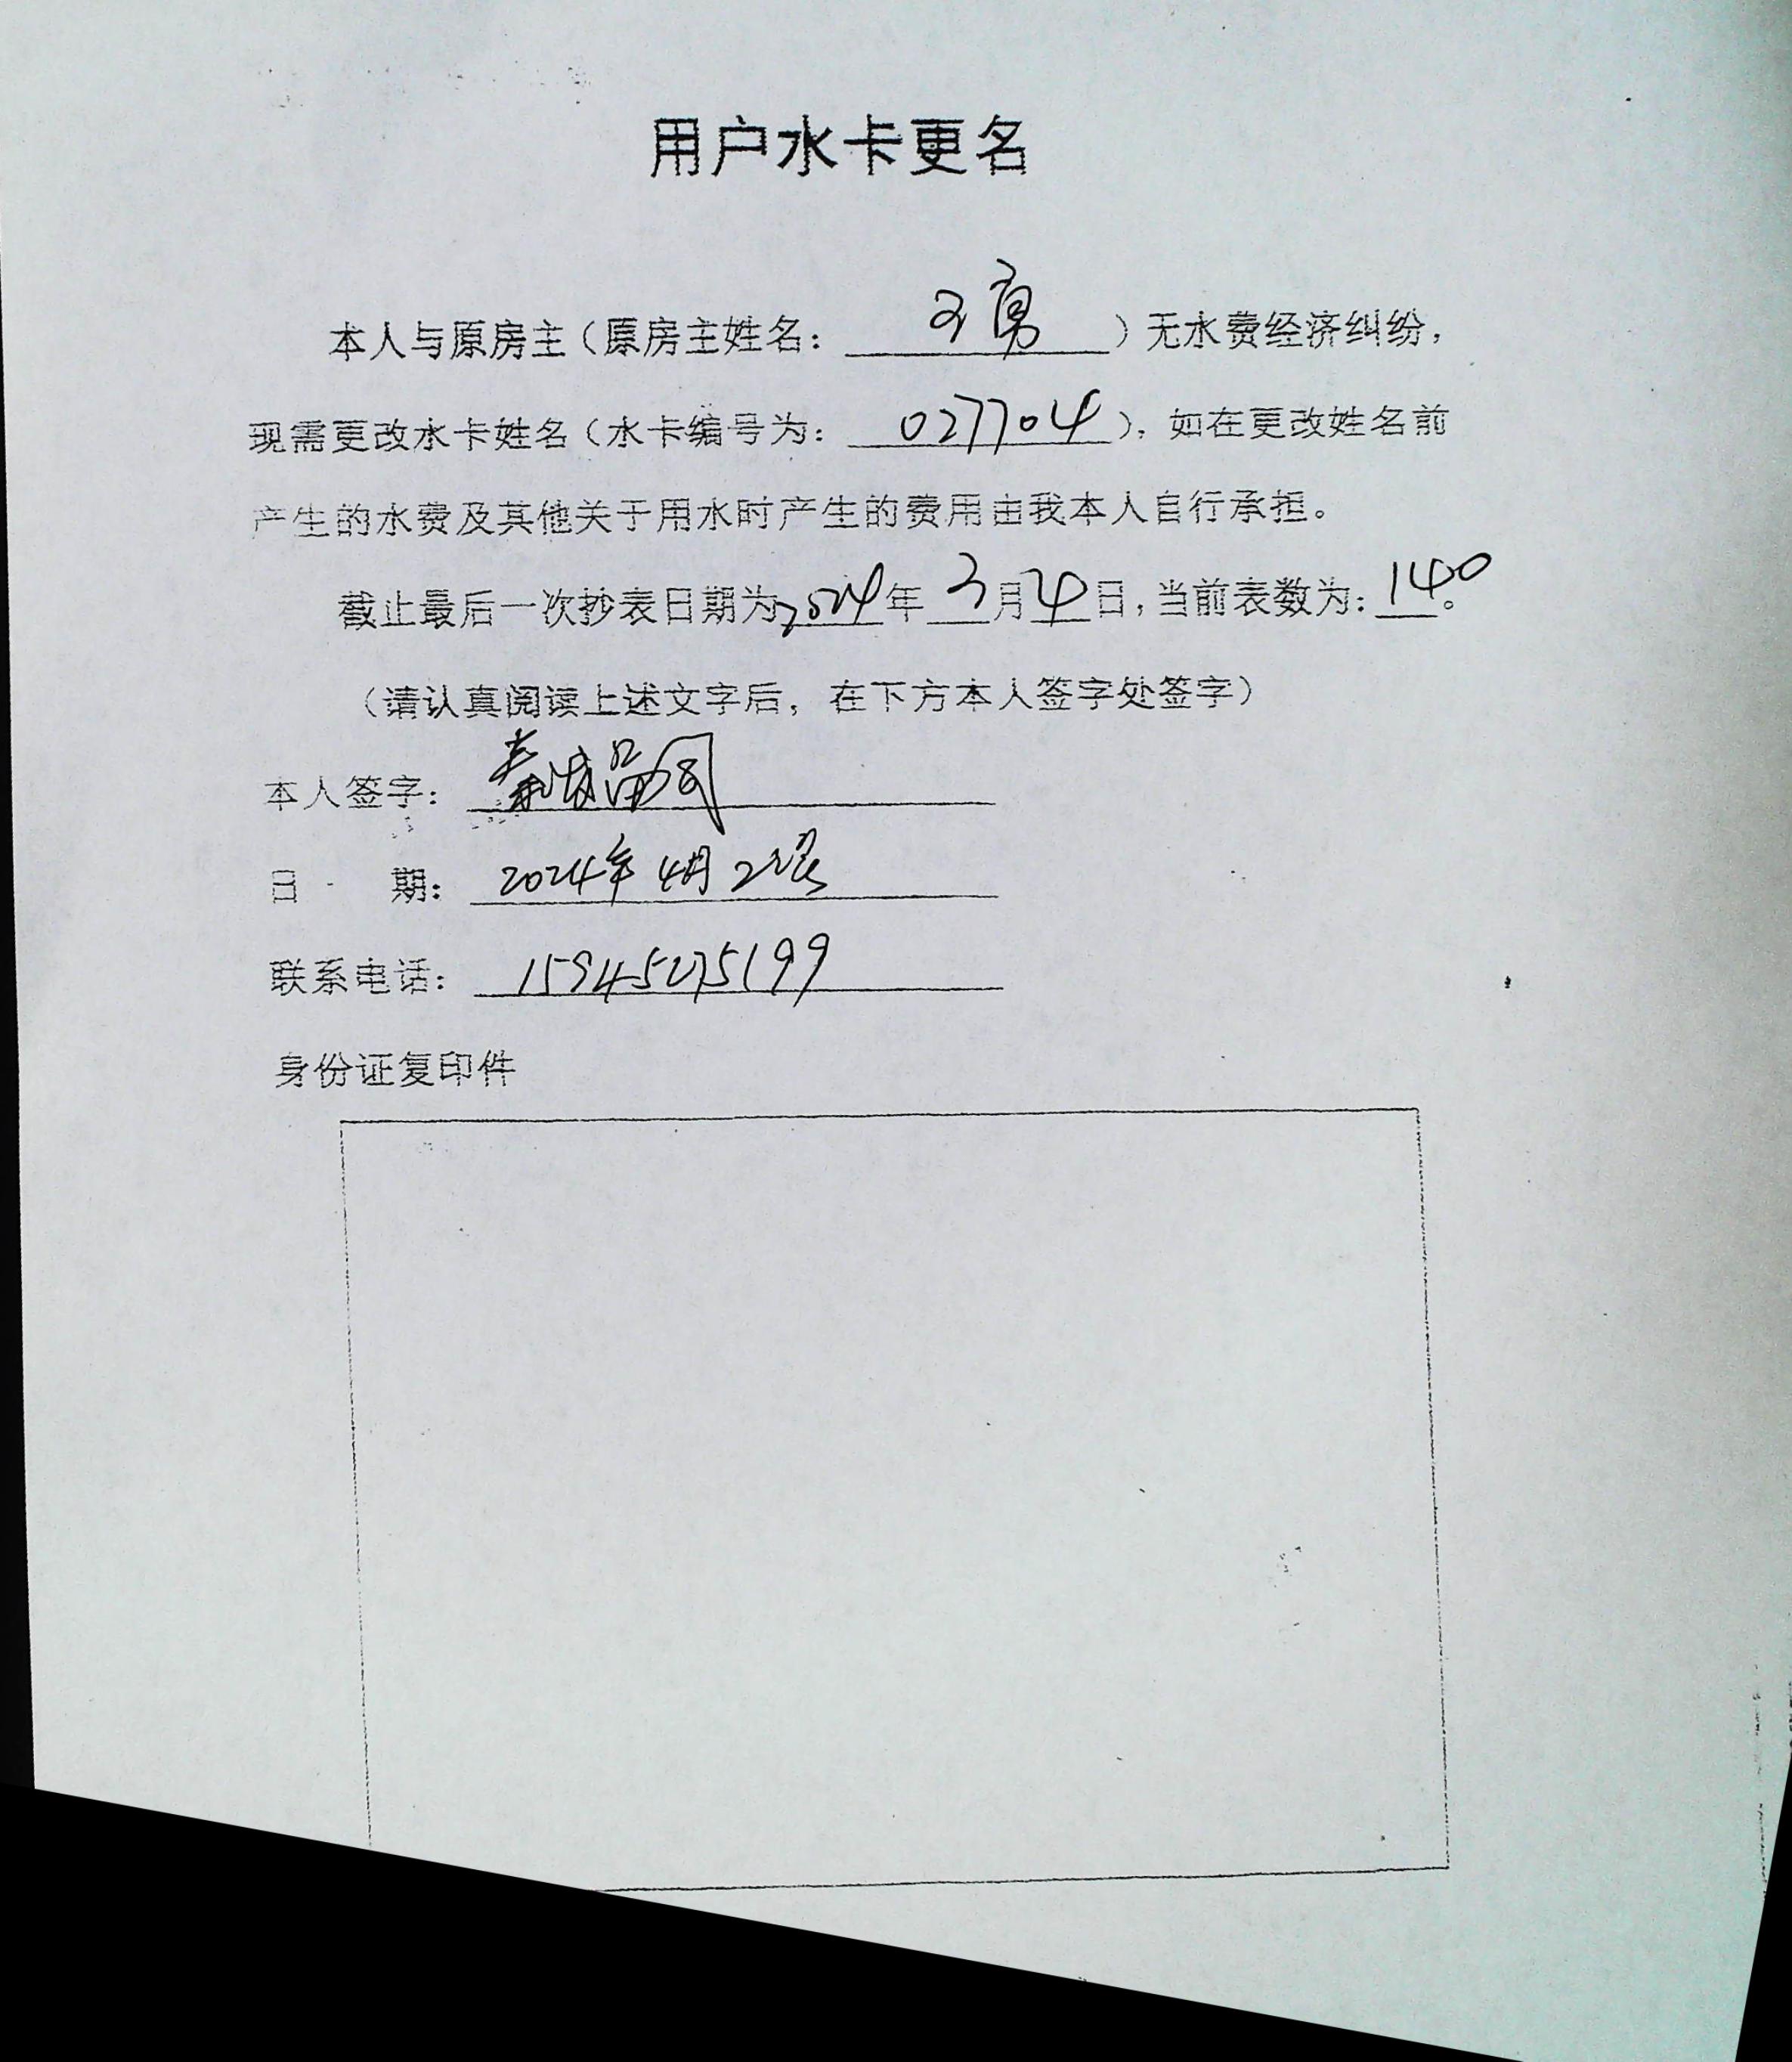 用户水卡更名
本人与原房主（原房主姓名：王勇）无水费经济纠纷，
现需更改水卡姓名（水卡编号为：027704），如在更改姓名前
产生的水费及其他关于用水时产生的费用由我本人自行承担。
截止最后一次抄表日期为2024年3月4日，当前表数为：140。
（请认真阅读上述文字后，在下方本人签字处签字）
本人签字：
日 期：2024年4月
联系电话：15945275199
身份证复印件